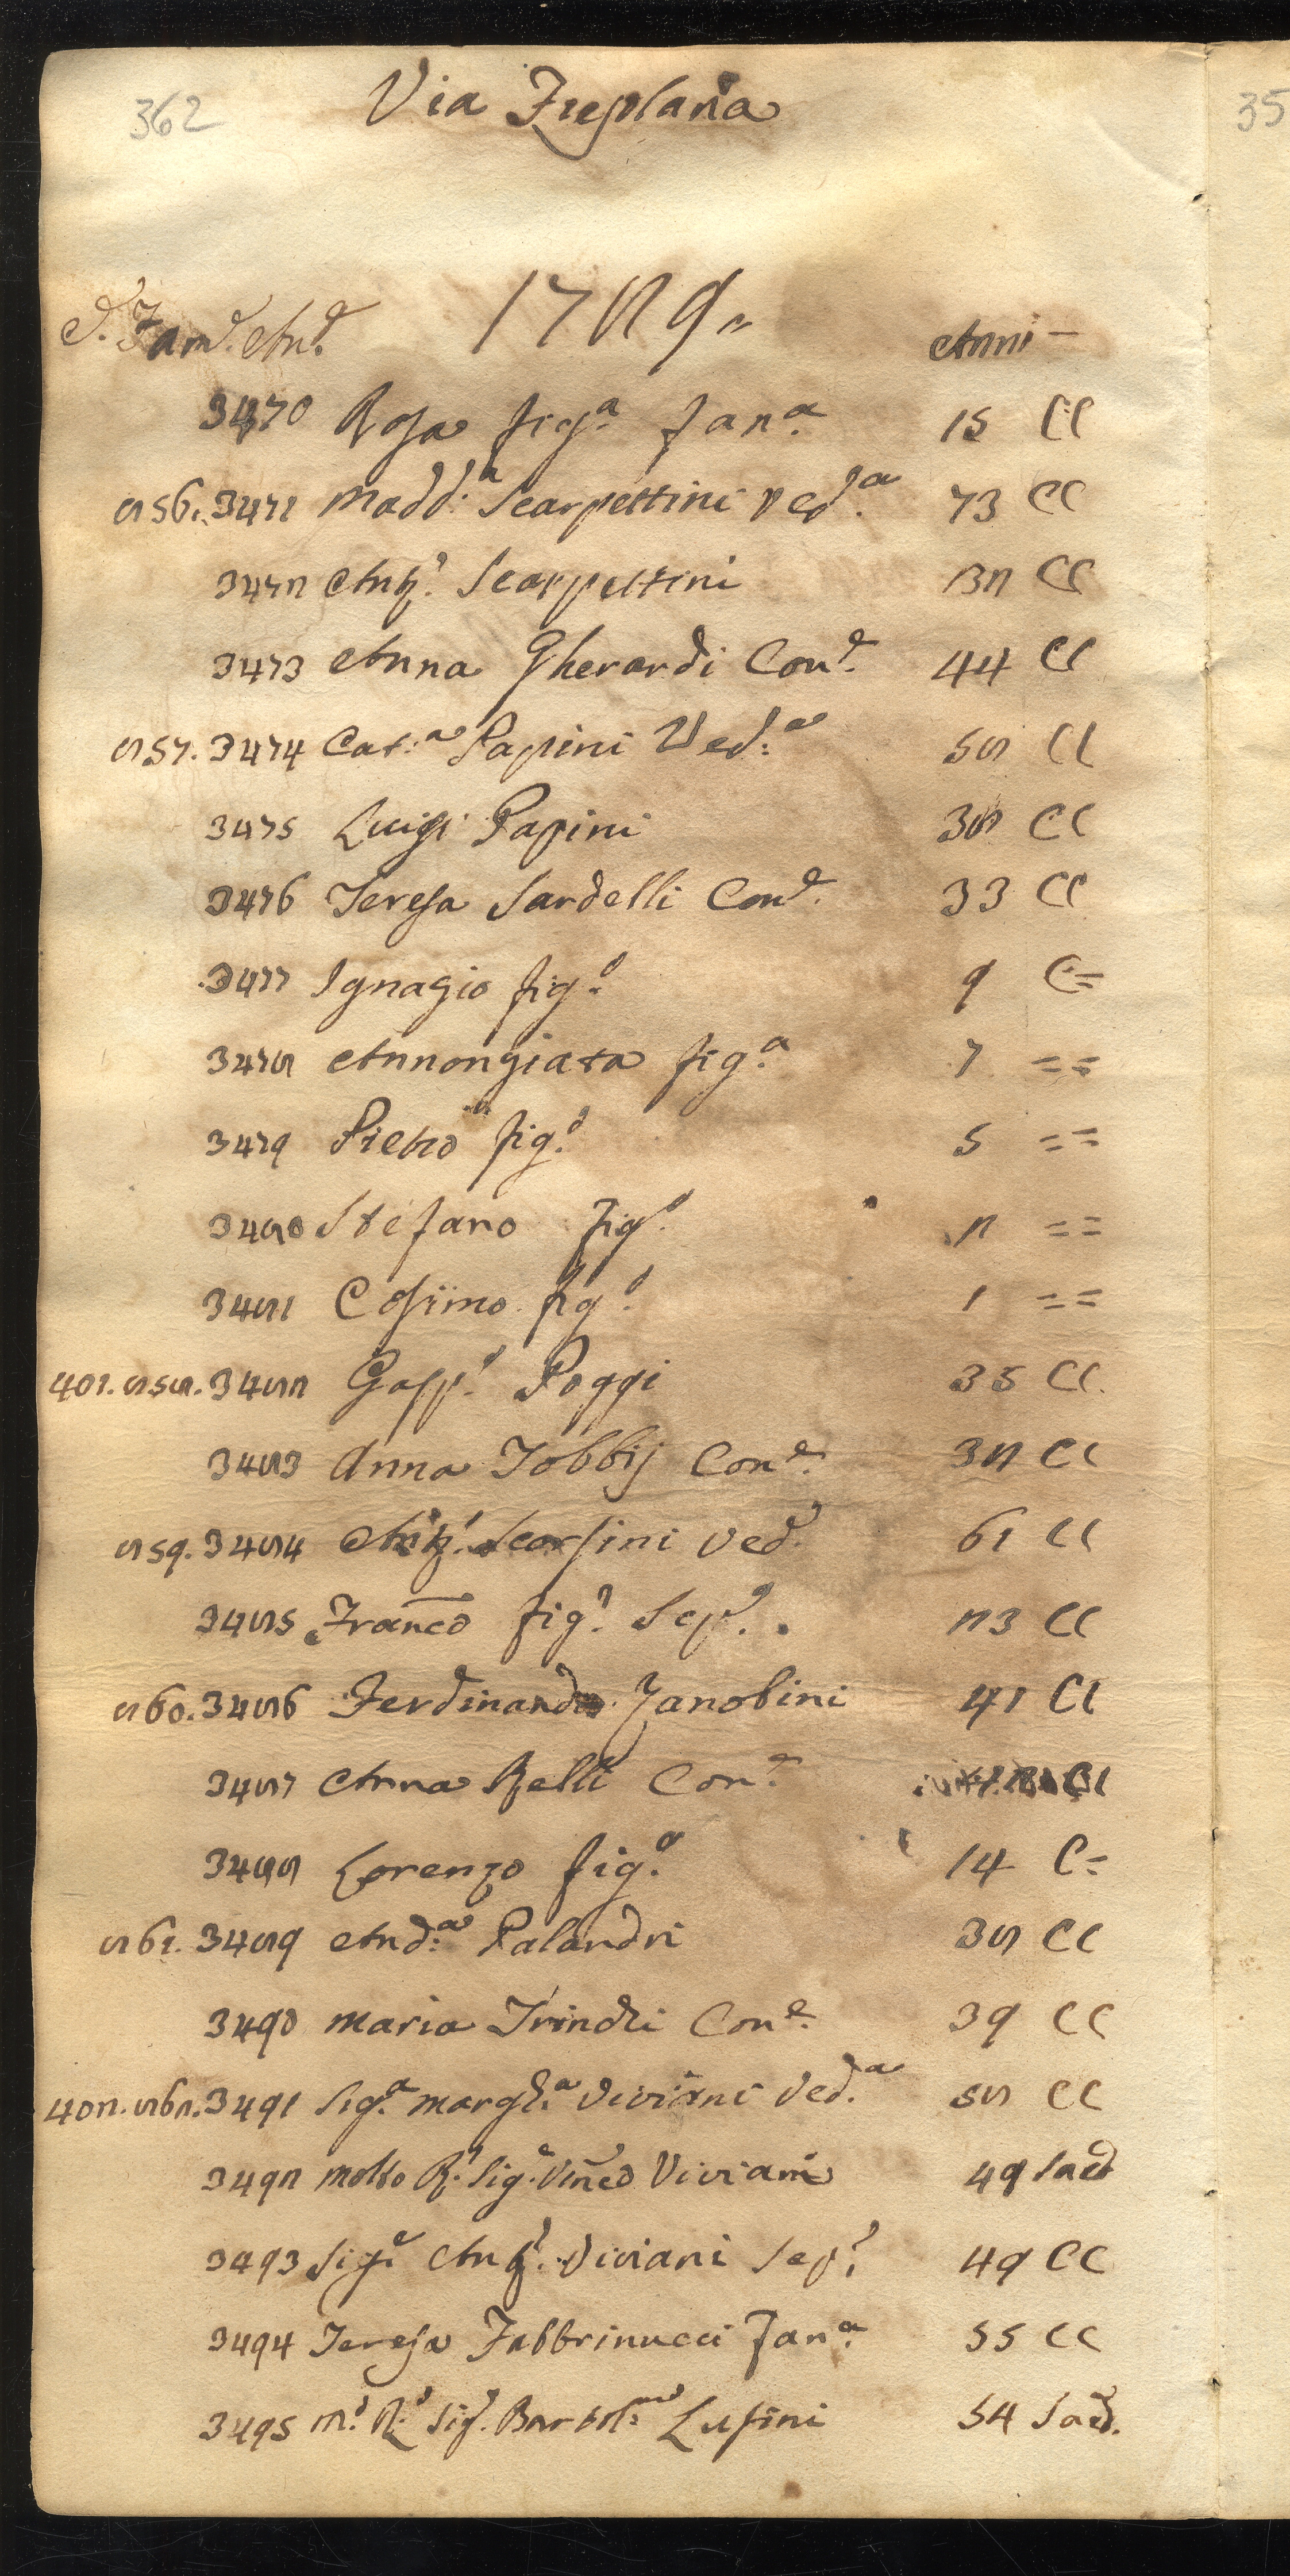 362
Via Frepolana
35
C. Fam.e An.e 1789
Anni
3470 Rosa fig.a Fan.a 15 CC
856. 3471 Madd.a Scarpettini Ved.a 73 CC
3472 Ant.o Scarpettini 32 CC
3473 Anna Gherardi Con.e 44 CC
857. 3474 Cat.a Papini Ved.a 58 CC
3475 Luigi Papini 38 CC
3476 Teresa Sardelli Con.e 33 CC
3477 Ignazio fig.o 9 C=
3478 Annonziata fig.a 7 ==
3479 Pietro fig.o 5 ==
3480 Stefano fig.o 2 ==
3481 Cosimo fig.o 1 ==
401. 858. 3482 Gasp.o Poggi 35 CC.
3483 Anna Jobbij Con.e 32 CC
859. 3484 Ant.o Scarsini Ved.o 61 CC
3485 Franco fig.o Sep.o 23 CC
860. 3486 Ferdinando Zanobini 41 CC
3487 Anna Belli Con.e CC
3488 Lorenzo fig.o 14 C=
861. 3489 And.a Palandri 38 CC
3490 Maria Trindli Con.e 39 CC
402. 862. 3491 Sig.a Margh.a Viviani Ved.a 58 CC
3492 Molto R.o Sig.e Vinco Viviani 49 Sacd
3493 Sig.e Ant.o Viviani Sep.o 49 CC
3494 Teresa Fabbrinucci Fan.a 55 CC
3495 M.o R.o Sig. Bartol.meo Lusini 54 Sacd.